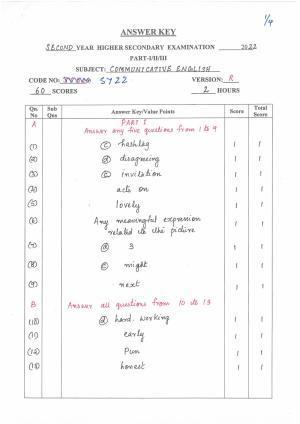 1/4
ANSWER KEY
SECOND YEAR HIGHER SECONDARY EXAMINATION 2022
PART-I/II/III
SUBJECT: COMMUNICATIVE ENGLISH
CODE NO: SY22 VERSION: R
60 SCORES 2 HOURS
Qn. No Sub Qus Answer Key/Value Points Score Total Score
A PART I
Answer any five questions from 1 to 9
(1) (c) hashtag 1 1
(2) (d) disagreeing 1 1
(3) (c) invitation 1 1
(4) acts on 1 1
(5) lovely 1 1
(6) Any meaningful expression
related to the picture 1 1
(7) (d) 3 1 1
(8) (c) might 1 1
(9) next 1 1
B Answer all questions from 10 to 13
(10) (d) hard working 1 1
(11) early 1 1
(12) Pun 1 1
(13) honest 1 1